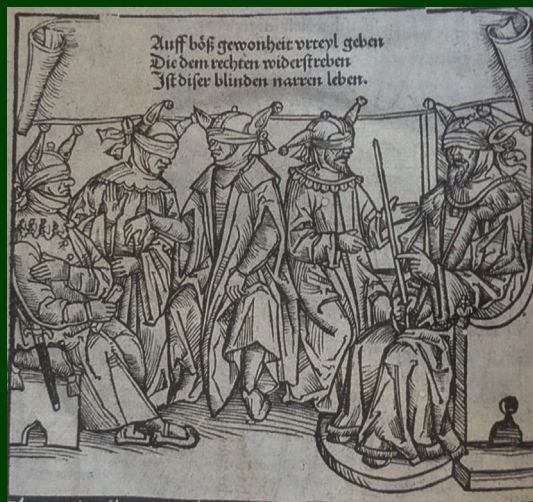 Auff böß gewonheit vrteyl geben
Die dem rechten widerstreben
Ist diser blinden narren leben.